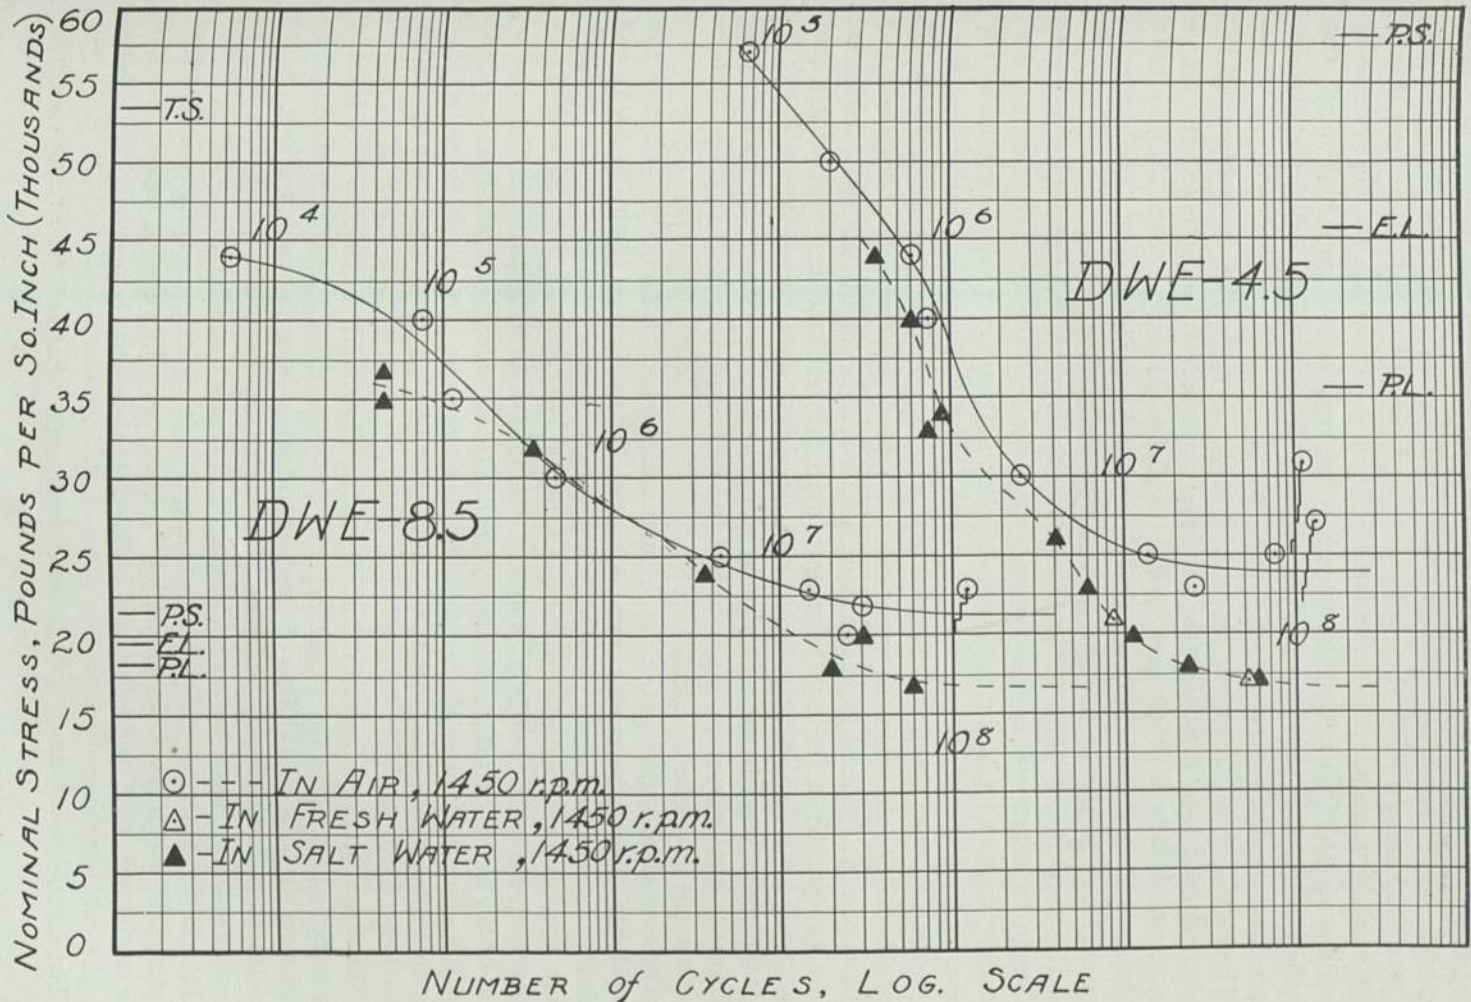 NOMINAL STRESS, POUNDS PER SQ. INCH (THOUSANDS)
60
55
50
45
40
35
30
25
20
15
10
5
0
T.S.
P.S.
E.L.
P.L.
10^4
10^5
10^6
10^7
10^8
DWE-8.5
10^5
10^6
10^7
10^8
DWE-4.5
P.S.
E.L.
P.L.
⊙ --- IN AIR, 1450 r.p.m.
△ - IN FRESH WATER, 1450 r.p.m.
▲ - IN SALT WATER, 1450 r.p.m.
NUMBER of CYCLES, LOG. SCALE